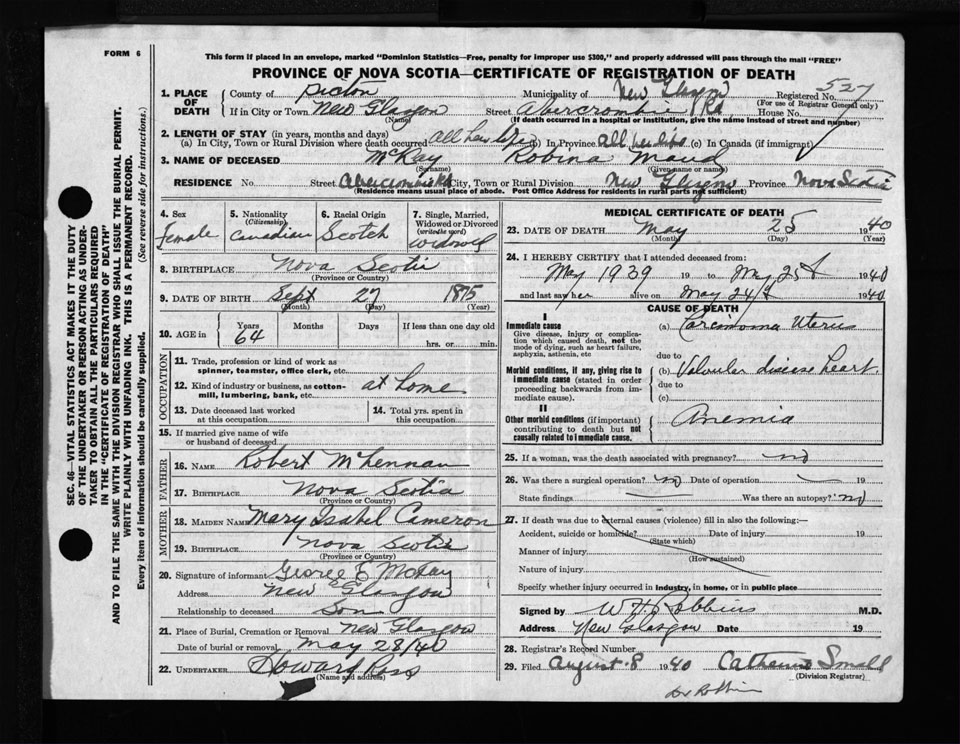 FORM 6
This form if placed in an envelope, marked "Dominion Statistics—Free, penalty for improper use $300," and properly addressed will pass through the mail "FREE"
PROVINCE OF NOVA SCOTIA—CERTIFICATE OF REGISTRATION OF DEATH
SEC. 46—VITAL STATISTICS ACT MAKES IT THE DUTY
OF THE UNDERTAKER OR PERSON ACTING AS UNDER-
TAKER TO OBTAIN ALL THE PARTICULARS REQUIRED
IN THE "CERTIFICATE OF REGISTRATION OF DEATH"
AND TO FILE THE SAME WITH THE DIVISION REGISTRAR WHO SHALL ISSUE THE BURIAL PERMIT.
WRITE PLAINLY WITH UNFADING INK. THIS IS A PERMANENT RECORD.
Every item of information should be carefully supplied. (See reverse side for instructions.)
1. PLACE OF DEATH County of Pictou Municipality of New Glasgow Registered No. 527
(For use of Registrar General only)
If in City or Town New Glasgow Street Abercrombie Rd House No.
(Name) (If death occurred in a hospital or institution, give the name instead of street and number)
2. LENGTH OF STAY (in years, months and days)
(a) In City, Town or Rural Division where death occurred All her life (b) In Province All her life (c) In Canada (if immigrant)
3. NAME OF DECEASED McKay Robina Maud
(Surname) (Given name or names)
RESIDENCE No. Street Abercrombie Rd City, Town or Rural Division New Glasgow Province Nova Scotia
(Residence means usual place of abode. Post Office Address for residents in rural parts not sufficient)
4. Sex Female
5. Nationality (Citizenship) Canadian
6. Racial Origin Scotch
7. Single, Married, Widowed or Divorced (write the word) Widowed
8. BIRTHPLACE Nova Scotia
(Province or Country)
9. DATE OF BIRTH Sept 27 1875
(Month) (Day) (Year)
10. AGE in Years 64 Months Days If less than one day hrs. or min.
OCCUPATION
11. Trade, profession or kind of work as spinner, teamster, office clerk, etc.
12. Kind of industry or business, as cotton-mill, lumbering, bank, etc. at home
13. Date deceased last worked at this occupation
14. Total yrs. spent in this occupation
15. If married give name of wife or husband of deceased
FATHER
16. NAME Robert McKennan
17. BIRTHPLACE Nova Scotia
(Province or Country)
MOTHER
18. MAIDEN NAME Mary Isabel Cameron
19. BIRTHPLACE Nova Scotia
(Province or Country)
20. Signature of informant George E McKay
Address New Glasgow
Relationship to deceased Son
21. Place of Burial, Cremation or Removal New Glasgow
Date of burial or removal May 28/40
22. UNDERTAKER Howard Ross
(Name and address)
MEDICAL CERTIFICATE OF DEATH
23. DATE OF DEATH May 25 1940
(Month) (Day) (Year)
24. I HEREBY CERTIFY that I attended deceased from:
May 1939 19 to May 25 1940
and last saw her alive on May 24 1940
CAUSE OF DEATH
I
Immediate cause (a) Carcinoma Uterus
Give disease, injury or complication which caused death, not the mode of dying, such as heart failure, asphyxia, asthenia, etc
due to
Morbid conditions, if any, giving rise to immediate cause (stated in order proceeding backwards from immediate cause). (b) Valvular disease heart
due to
(c)
II
Other morbid conditions (if important) contributing to death but not causally related to immediate cause. Anemia
25. If a woman, was the death associated with pregnancy? no
26. Was there a surgical operation? no Date of operation 19
State findings Was there an autopsy? no
27. If death was due to external causes (violence) fill in also the following:—
Accident, suicide or homicide? Date of injury 19
(State which)
Manner of injury
(How sustained)
Nature of injury
Specify whether injury occurred in industry, in home, or in public place
Signed by W.H. Robbins M.D.
Address New Glasgow Date 19
28. Registrar's Record Number
29. Filed August 8 1940 Catherine Small
(Division Registrar)
Dr Robbins